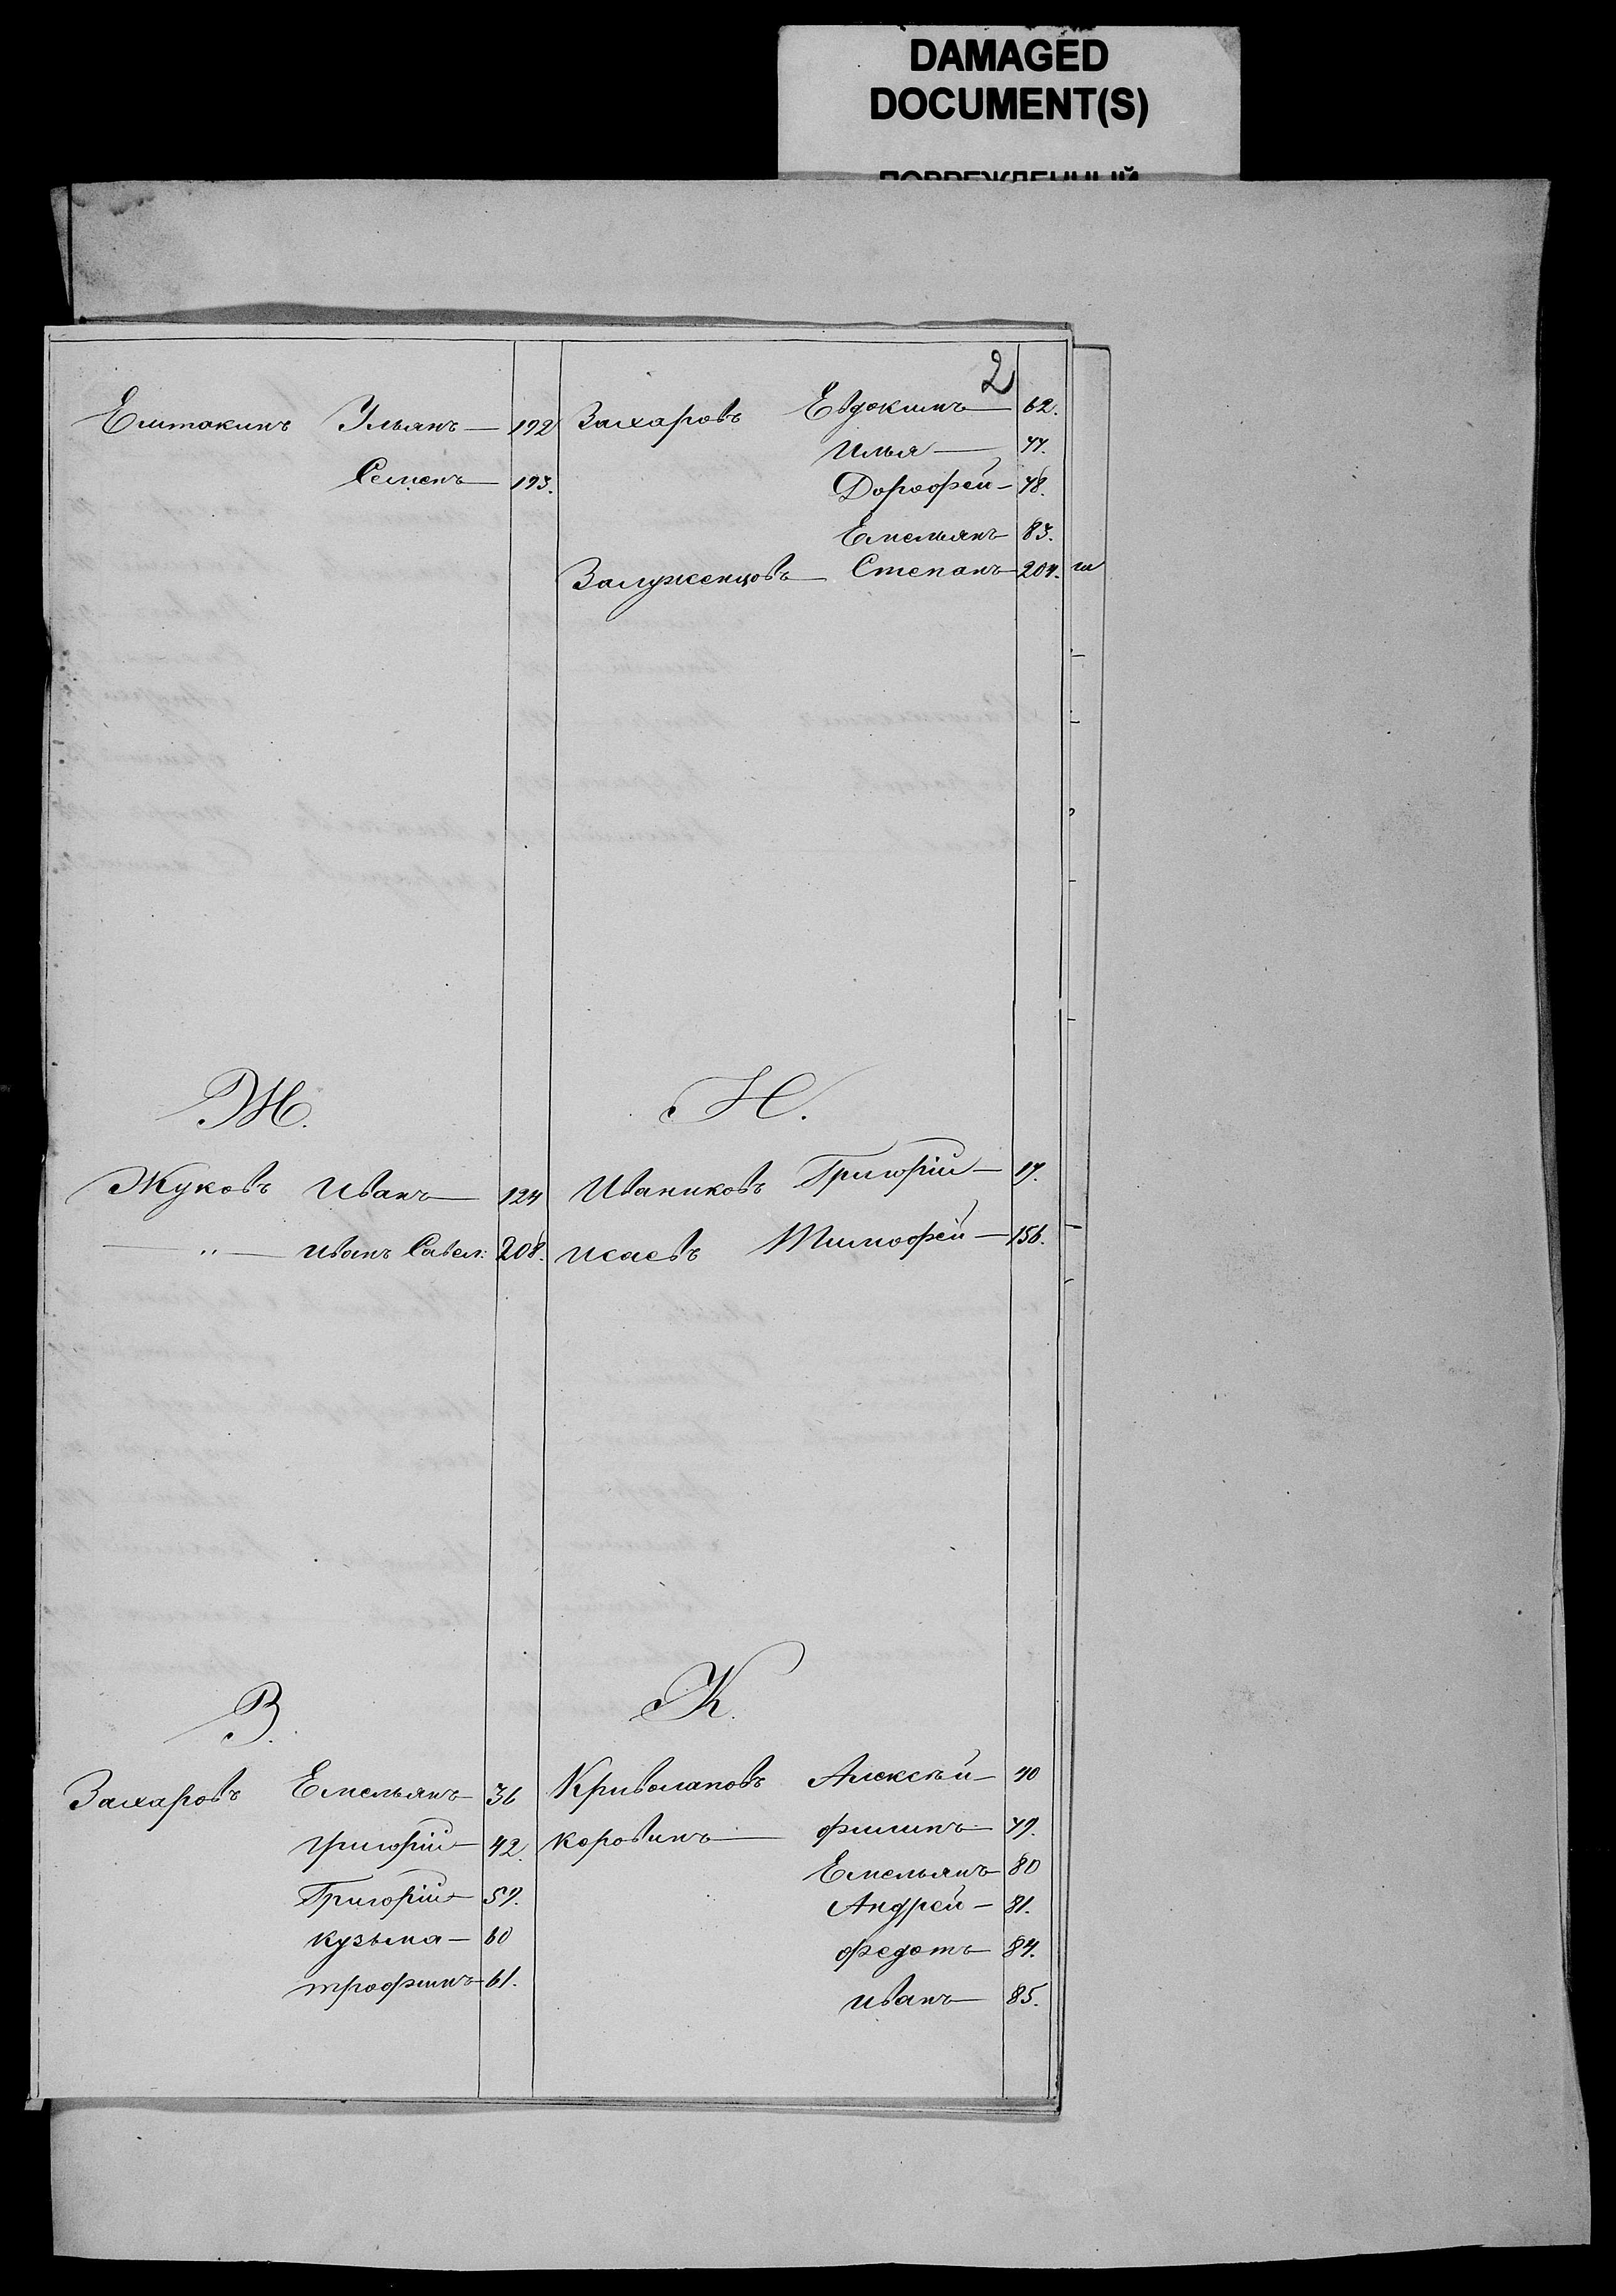 DAMAGED
DOCUMENT(S)
ПОВРЕЖДЕННЫЙ
2
Ештокинъ Ульянъ — 192
Семенъ — 193.
Ж.
Жуковъ Иванъ — 124
— „ — иванъ Савел: 208.
З.
Захаровъ Емельянъ — 36
григорій — 42.
Григорій — 59.
кузьма — 60
трофимъ — 61.
Захаровъ Евдокимъ — 62.
илья — 77.
Дорофей — 78.
Емельянъ 83.
Залуженцовъ — Степанъ — 204.
И.
Иваниковъ Григорій — 17.
исаевъ Тимофей — 156.
К.
Криволаповъ Алексѣй — 40
коровинъ — филипъ — 79.
Емельянъ — 80
Андрей — 81.
федотъ — 84.
иванъ — 85.